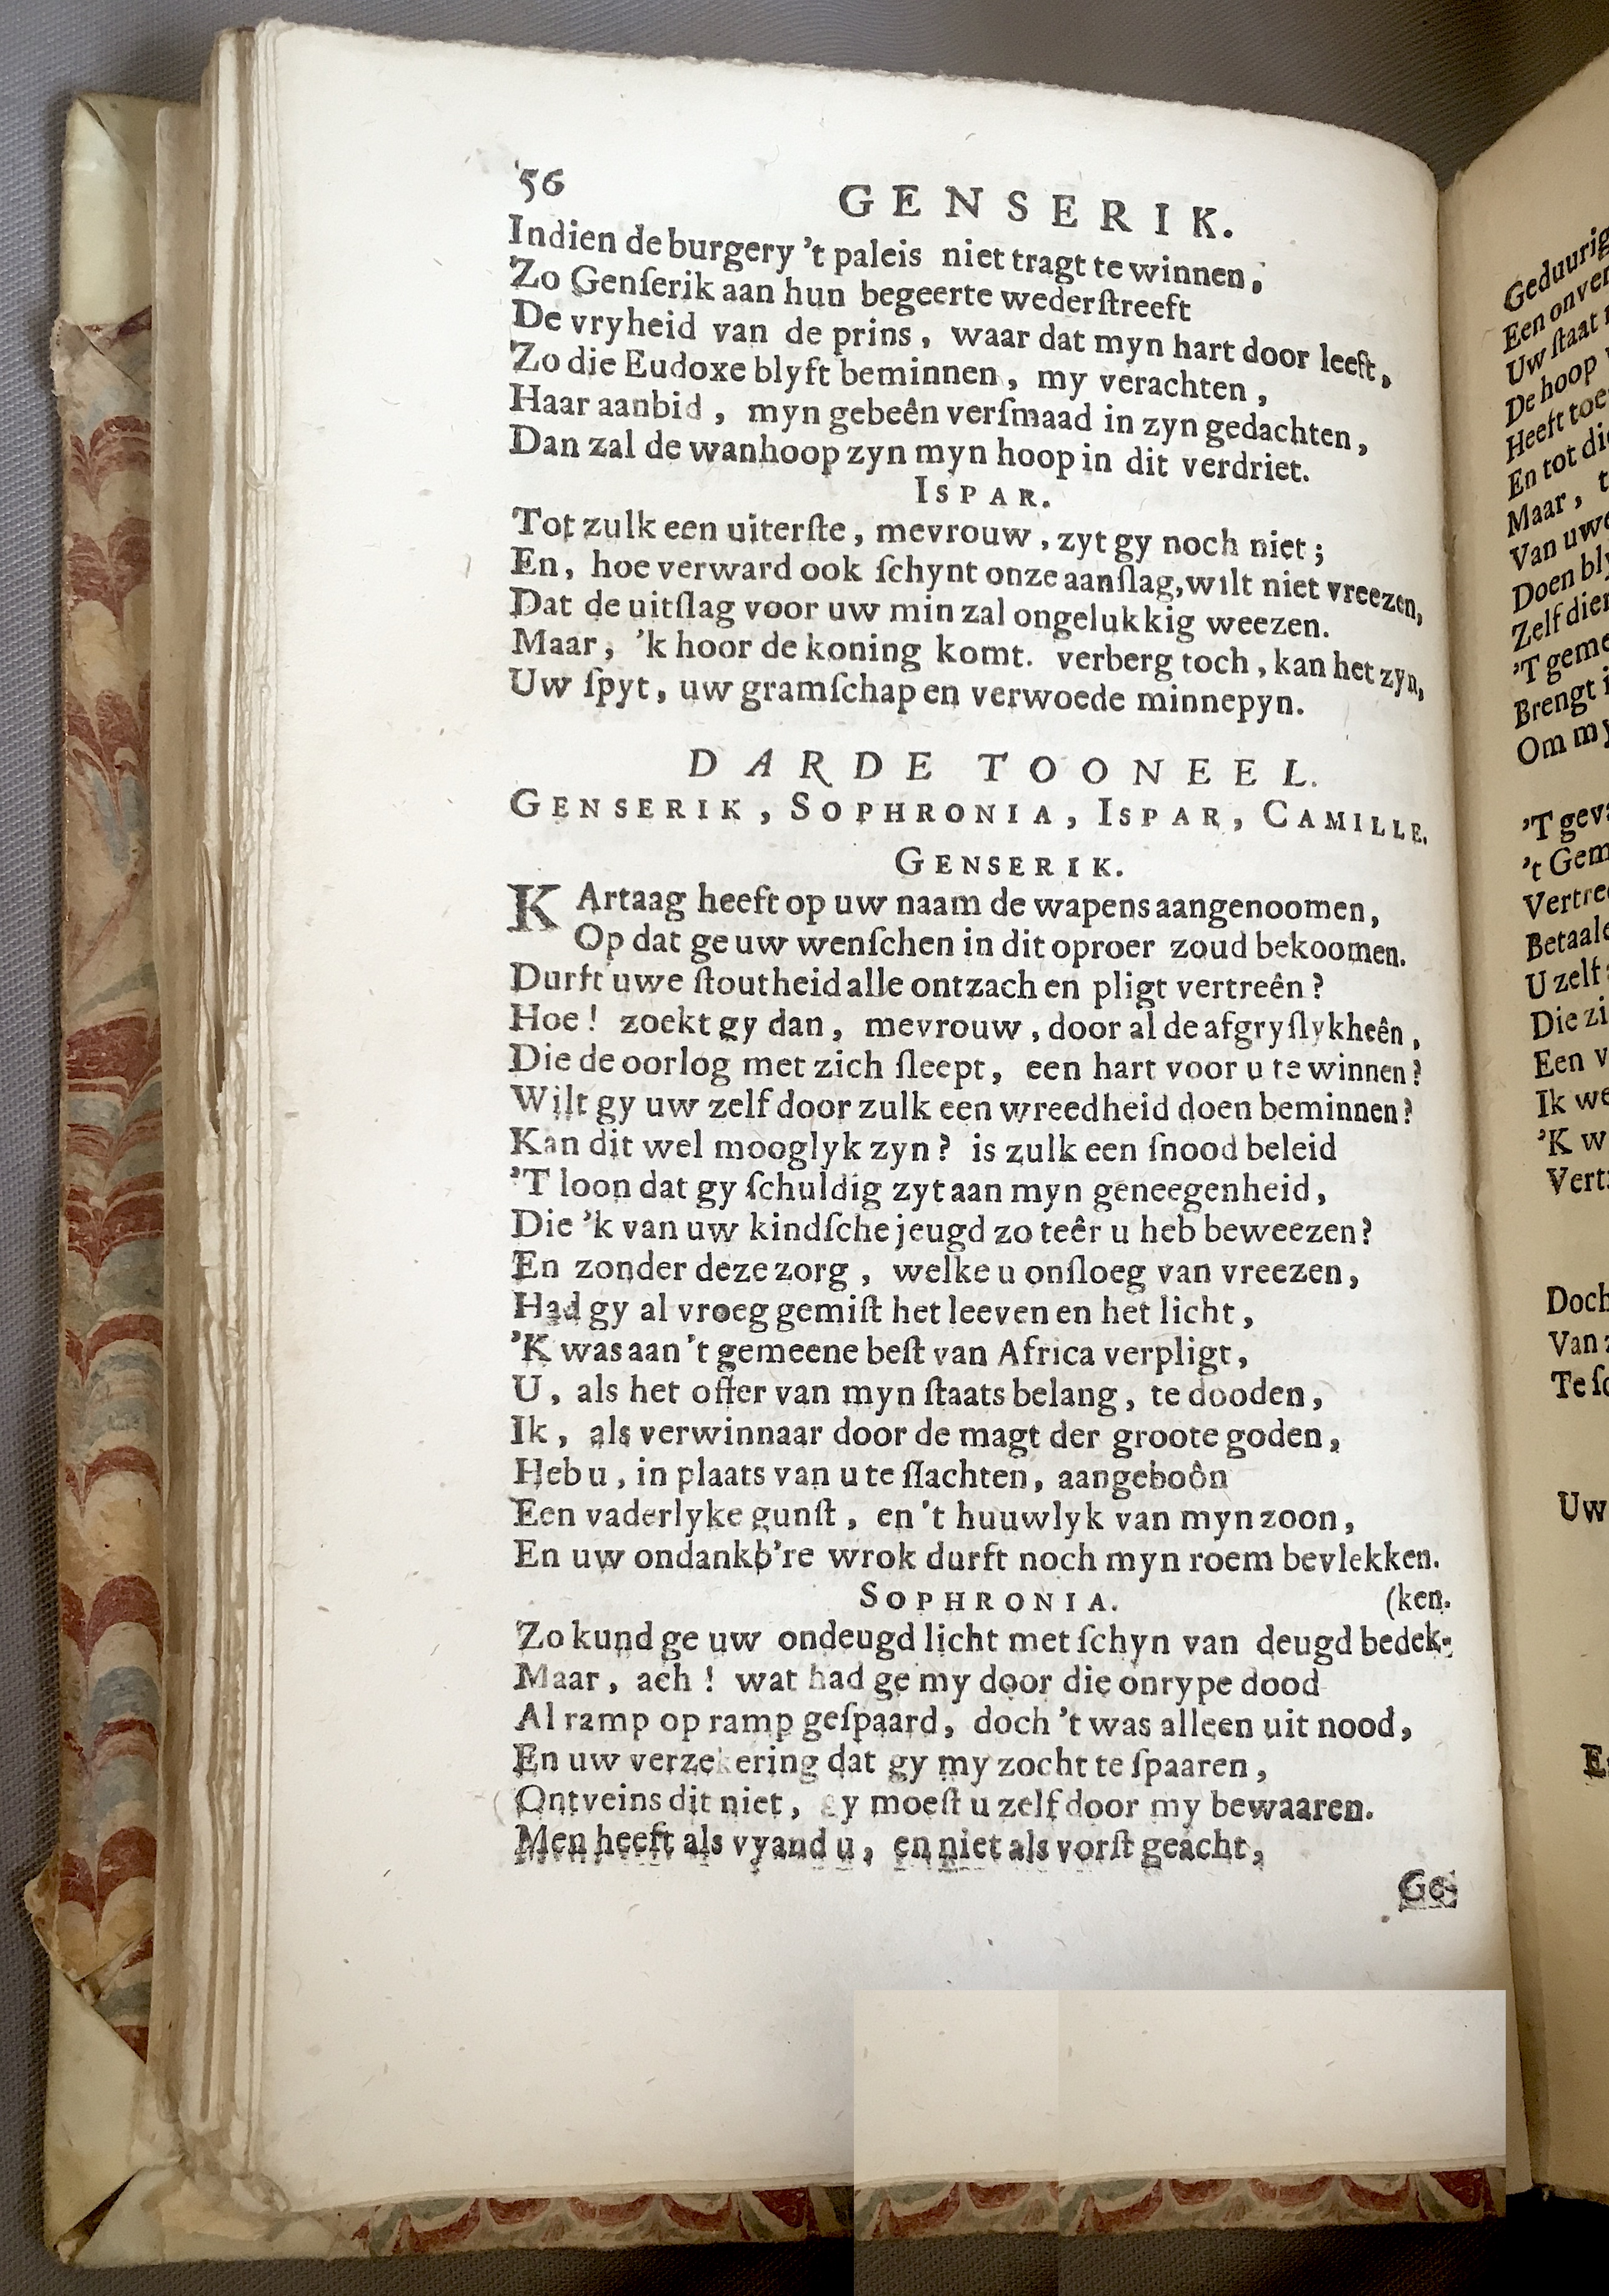 56
GENSERIK.
Indien de burgery 't paleis niet tragt te winnen,
Zo Genſerik aan hun begeerte wederſtreeft
De vryheid van de prins, waar dat myn hart door leeft,
Zo die Eudoxe blyft beminnen, my verachten,
Haar aanbid, myn gebeên verſmaad in zyn gedachten,
Dan zal de wanhoop zyn myn hoop in dit verdriet.
ISPAR.
Tot zulk een uiterſte, mevrouw, zyt gy noch niet;
En, hoe verward ook ſchynt onze aanſlag, wilt niet vreezen,
Dat de uitſlag voor uw min zal ongelukkig weezen.
Maar, 'k hoor de koning komt. verberg toch, kan het zyn,
Uw ſpyt, uw gramſchap en verwoede minnepyn.
DARDE TOONEEL.
GENSERIK, SOPHRONIA, ISPAR, CAMILLE.
GENSERIK.
KArtaag heeft op uw naam de wapens aangenoomen,
Op dat ge uw wenſchen in dit oproer zoud bekoomen.
Durft uwe ſtoutheid alle ontzach en pligt vertreên?
Hoe! zoekt gy dan, mevrouw, door al de afgryſlykheên,
Die de oorlog met zich ſleept, een hart voor u te winnen?
Wilt gy uw zelf door zulk een wreedheid doen beminnen?
Kan dit wel mooglyk zyn? is zulk een ſnood beleid
'T loon dat gy ſchuldig zyt aan myn geneegenheid,
Die 'k van uw kindſche jeugd zo teêr u heb beweezen?
En zonder deze zorg, welke u onſloeg van vreezen,
Had gy al vroeg gemiſt het leeven en het licht,
'K was aan 't gemeene beſt van Africa verpligt,
U, als het offer van myn ſtaats belang, te dooden,
Ik, als verwinnaar door de magt der groote goden,
Heb u, in plaats van u te ſlachten, aangeboôn
Een vaderlyke gunſt, en 't huuwlyk van myn zoon,
En uw ondankb're wrok durft noch myn roem bevlekken.
SOPHRONIA. (ken.
Zo kund ge uw ondeugd licht met ſchyn van deugd bedek-
Maar, ach! wat had ge my door die onrype dood
Al ramp op ramp geſpaard, doch 't was alleen uit nood,
En uw verzekering dat gy my zocht te ſpaaren,
Ontveins dit niet, gy moeſt u zelf door my bewaaren.
Men heeft als vyand u, en niet als vorſt geacht,
Ge-
Geduurig
Een onver
Uw ſtaat
De hoop
Heeft toe
En tot di
Maar,
Van uwe
Doen bly
Zelf dier
'T geme
Brengt
Om my
'T geva
't Gem
Vertre
Betaale
U zelf
Die zi
Een v
Ik we
'K w
Vert
Doch
Van
Te ſc
Uw